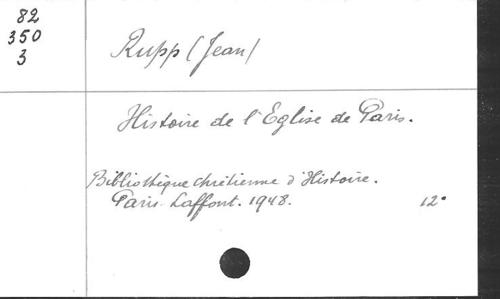 82
350
3
Rupp (Jean)
Histoire de l'Eglise de Paris.
Bibliothèque chrétienne d'Histoire.
Paris. Laffont. 1948. 12°